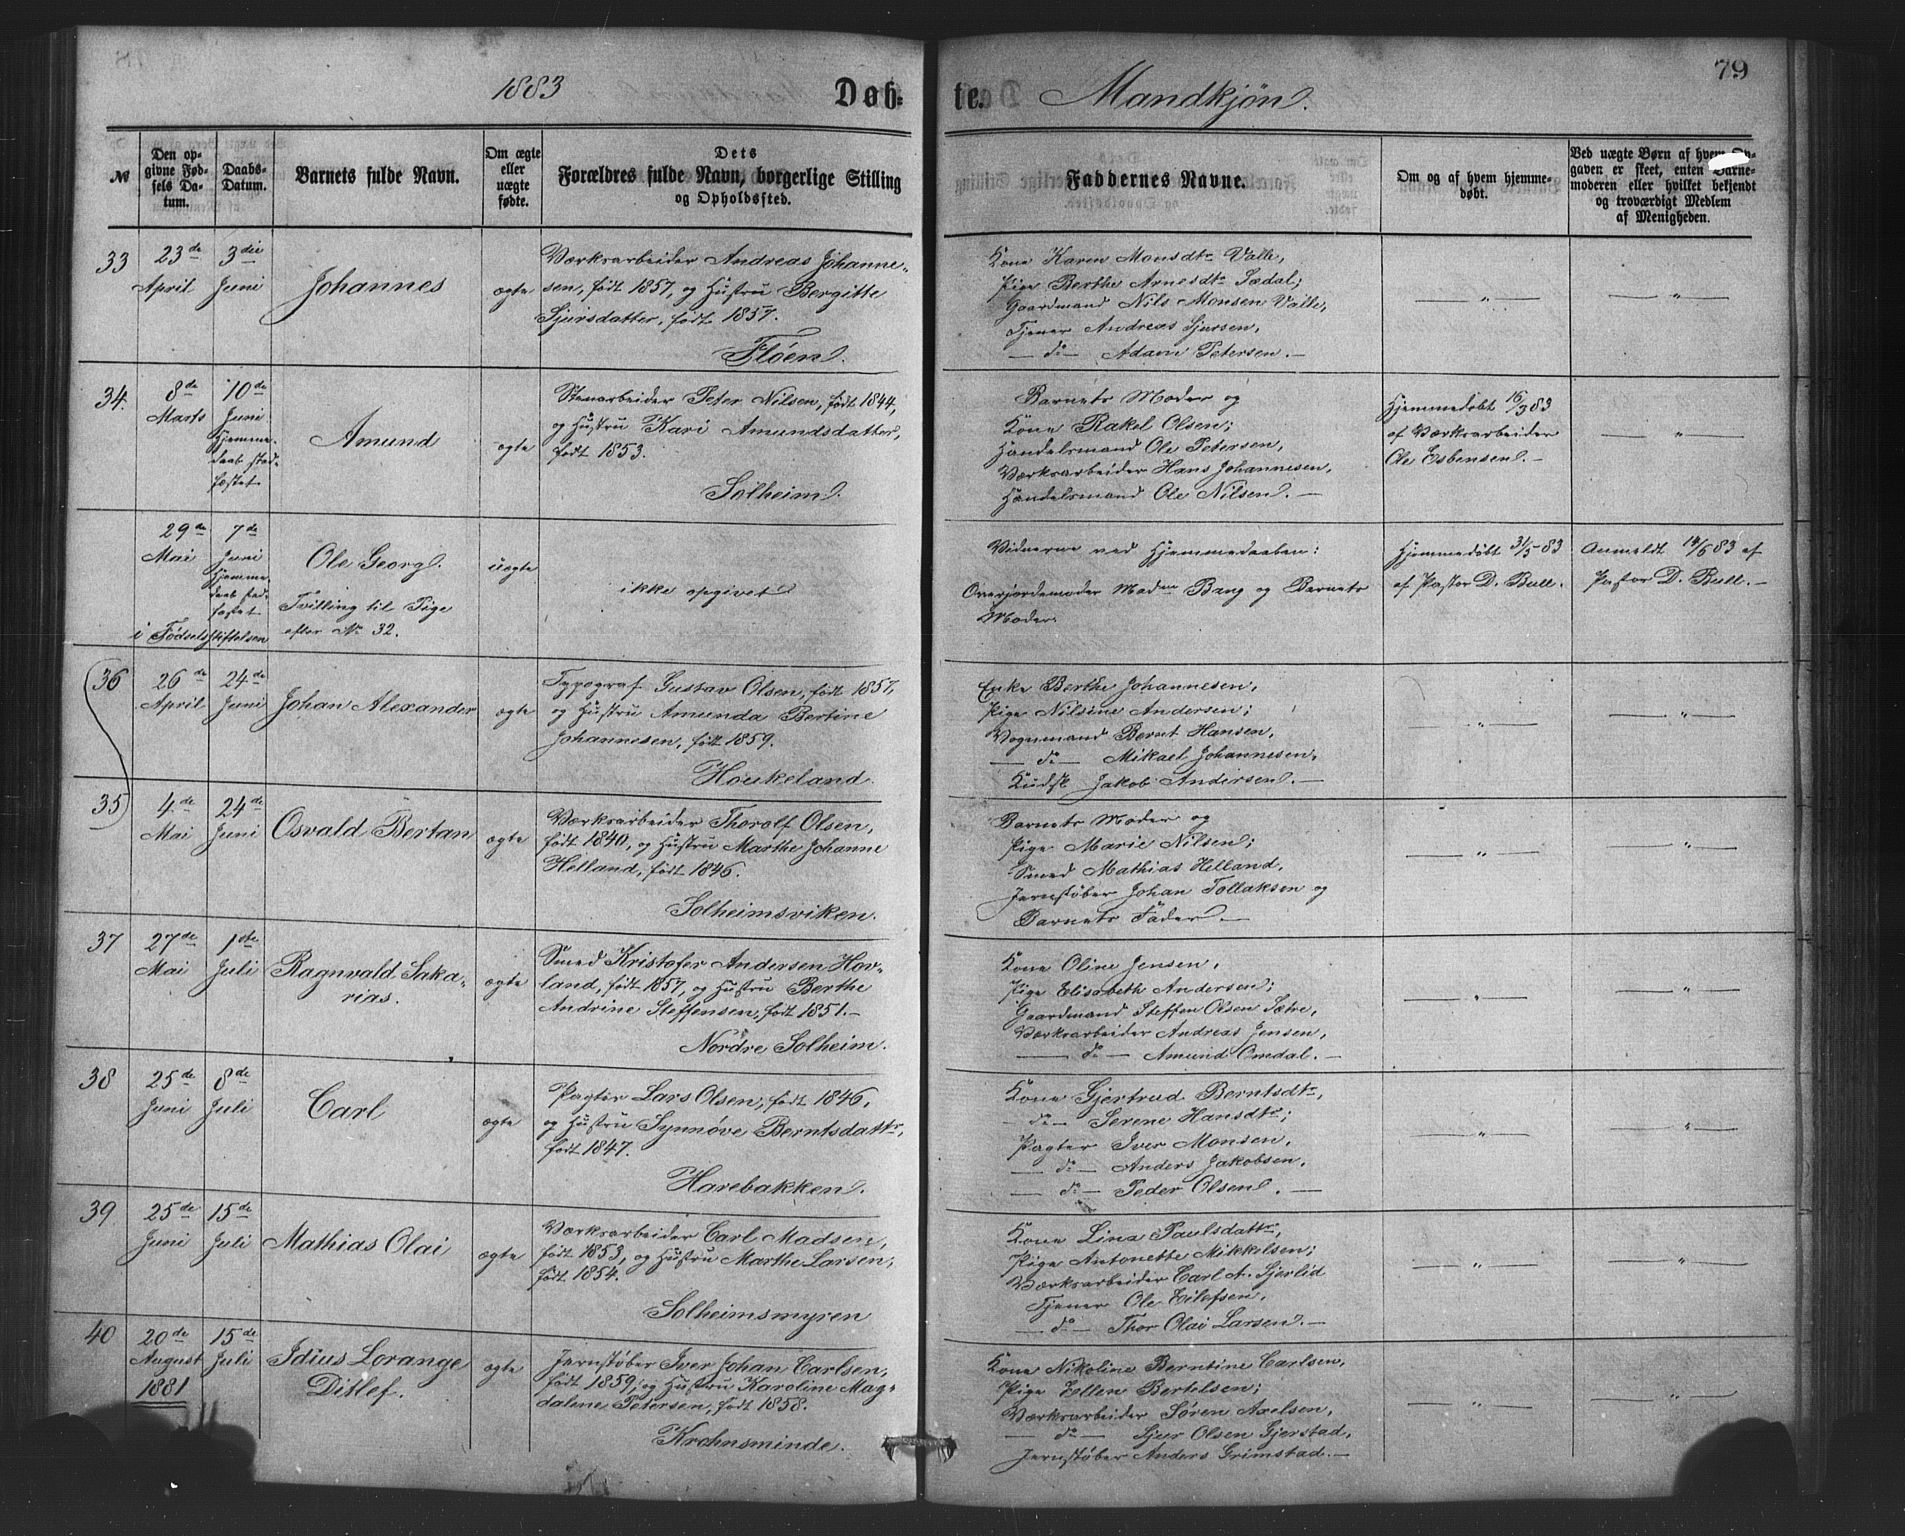 1883
Døb-
te.
Mandkjøn.
79
№
Den op-
givne Fød-
sels Da-
tum.
Daabs-
Datum.
Barnets fulde Navn.
Om ægte
eller
uægte
fødte.
Dets
Forældres fulde Navn, borgerlige Stilling
og Opholdssted.
Faddernes Navne.
Om og af hvem hjemme-
døbt.
Ved uægte Børn af hvem Op-
gaven er skeet, enten Barne-
moderen eller hvilket bekjendt
og troværdigt Medlem
af Menigheden.
33
23de
April
3die
Juni
Johannes
ægte
Værksarbeider Andreas Johanne-
sen, født 1857, og Hustru Bergitte
Sjursdatter, født 1857.
Fløen.
Kone Karen Monsdtr Valle,
Pige Berthe Arnesdtr Sædal;
Gaardmand Nils Monsen Valle,
Tjener Andreas Sjursen,
— do — Adam Petersen. —
— " —
— " —
34.
8de
Marts
10de
Juni
Hjemme-
daab stad-
fæstet
Amund
ægte
Stenarbeider Peter Nilsen, født 1844,
og Hustru Kari Amundsdatter,
født 1853.
Solheim.
Barnets Moder og
Kone Rakel Olsen;
Handelsmand Ole Petersen,
Værksarbeider Hans Johannesen,
Handelsmand Ole Nilsen. —
Hjemmedøbt 16/3 83
af Værksarbeider
Ole Esbensen. —
— " —
29de
Mai
7de
Juni
Hjemme
daab stad-
fæstet
i Fødselsstiftelsen
Ole Georg.
Tvilling til Pige
efter No 32.
uægte
ikke opgivet
Vidnerne ved Hjemmedaaben:
Overjordemoder Madme Bang og Barnets
Moder.
Hjemmedøbt 31/5 83
af Pastor D. Bull. —
Anmeldt 14/6 83 af
Pastor D. Bull. —
36
26de
April
24de
Juni
Johan Alexander
ægte
Typograf Gustav Olsen, født 1857,
og Hustru Amunda Bertine
Johannesen, født 1859.
Houkeland.
Enke Berthe Johannesen,
Pige Nilsine Andersen;
Vognmand Bernt Hansen,
— do — Mikael Johannesen,
Kudsk Jakob Andersen. —
— " —
— " —
35
4de
Mai
24de
Juni
Osvald Bertan
ægte
Værksarbeider Thorolf Olsen,
født 1840, og Hustru Marthe Johanne
Helland, født 1846.
Solheimsviken.
Barnets Moder og
Pige Marie Nilsen;
Smed Mathias Helland,
Jernstøber Johan Tollaksen og
Barnets Fader. —
— " —
— " —
37
27de
Mai
1ste
Juli
Ragnvald Saka-
rias.
ægte
Smed Kristofer Andersen Hov-
land, født 1857, og Hustru Berthe
Andrine Steffensen, født 1851. —
Nordre Solheim.
Kone Oline Jensen,
Pige Elisabeth Andersen;
Gaardmand Steffen Olsen Sætre,
Værksarbeider Andreas Jensen,
— do — Amund Omdal. —
— " —
— " —
38
25de
Juni
8de
Juli
Carl
ægte
Pagter Lars Olsen, født 1846,
og Hustru Synnøve Berntsdattr,
født 1847.
Harebakken.
Kone Gjertrud Berntsdtr,
— do — Serene Hansdtr;
Pagter Iver Monsen,
— do — Anders Jakobsen,
— do — Peder Olsen. —
— " —
— " —
39
25de
Juni
15de
Juli
Mathias Olai
ægte
Værksarbeider Carl Madsen,
født 1853, og Hustru Marthe Larsen,
født 1854.
Solheimsmyren
Kone Lina Paulsdattr,
Pige Antonette Mikkelsen;
Værksarbeider Carl A. Gjerlid
Tjener Ole Eilefsen,
— do — Thor Olai Larsen. —
— " —
— " —
40
20de
August
1881
15de
Juli
Idius Lorange
Ditlef.
ægte
Jernstøber Iver Johan Carlsen,
født 1859, og Hustru Karoline Mag-
dalene Petersen, født 1858.
Krohnsminde.
Kone Nikoline Berntine Carlsen,
Pige Ellen Bertelsen;
Værksarbeider Søren Axelsen,
— do — Sjur Olsen Gjerstad,
Jernstøber Anders Grimstad. —
— " —
— " —